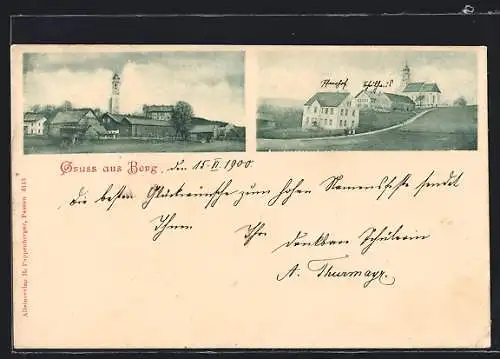 Pfarrhof Schulhs.
Gruss aus Berg, den 15. II. 1900.
die besten Glückwünsche zum hohen Namensfeste sendet
Ihnen Ihre dankbare Schülerin
A. Thurmayr.
Alleinverlag H. Poppenberger, Passau